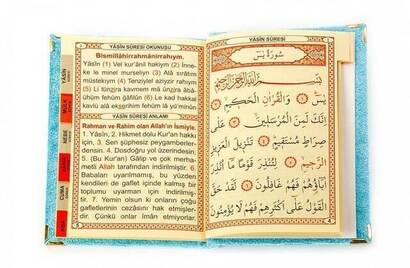 YÂSİN SÛRESİ OKUNUŞU
Bismillâhirrahmânirrahıym.
Yâsîn (1) Vel kur'ânil hakiym (2) İnne-
ke le minel murseliyn (3) Alâ sırâtım
müstekiym (4) Tenziylel aziyzir rahiym
(5) Li tünzira kavmem mâ ünzira âbâ-
ühüm fehüm ğâfilûn (6) Le kad hakkal
kavlü alâ ekserihim fehüm lâ yü'minûn
YÂSÎN SÛRESİ ANLAMI
Rahman ve Rahim olan Allah'ın İsmiyle.
1. Yâsîn, 2. Hikmet dolu Kur'an hakkı
için, 3. Sen şüphesiz peygamberler-
densin. 4. Dosdoğru yol üzerindesin.
5. (Bu Kur'an) Gâlip ve çok merha-
metli Allah tarafından indirilmiştir. 6.
Babaları uyarılmamış, bu yüzden
kendileri de gaflet içinde kalmış bir
toplumu uyarman için indirilmiş-
tir. 7. Yemin olsun ki onların çoğu
gafletlerinin cezasını hak etmişler-
dir. Çünkü onlar îmân etmiyorlar.
YÂSİN
MÜLK
NEBE
CUMA
YÂSÎN SÛRESİ
سُورَةُ يٰسٓ
بِسْمِ اللّٰهِ الرَّحْمٰنِ الرَّحِيمِ
يٰسٓ ﴿١﴾ وَالْقُرْاٰنِ الْحَكِيمِ ﴿٢﴾
اِنَّكَ لَمِنَ الْمُرْسَلِينَ ﴿٣﴾ عَلٰى
صِرَاطٍ مُسْتَقِيمٍ ﴿٤﴾ تَنْزِيلَ الْعَزِيزِ
الرَّحِيمِ ﴿٥﴾ لِتُنْذِرَ قَوْمًا مَٓا اُنْذِرَ
اٰبَٓاؤُ۬هُمْ فَهُمْ غَافِلُونَ ﴿٦﴾ لَقَدْ حَقَّ
الْقَوْلُ عَلٰٓى اَكْثَرِهِمْ فَهُمْ لَا يُؤْمِنُونَ